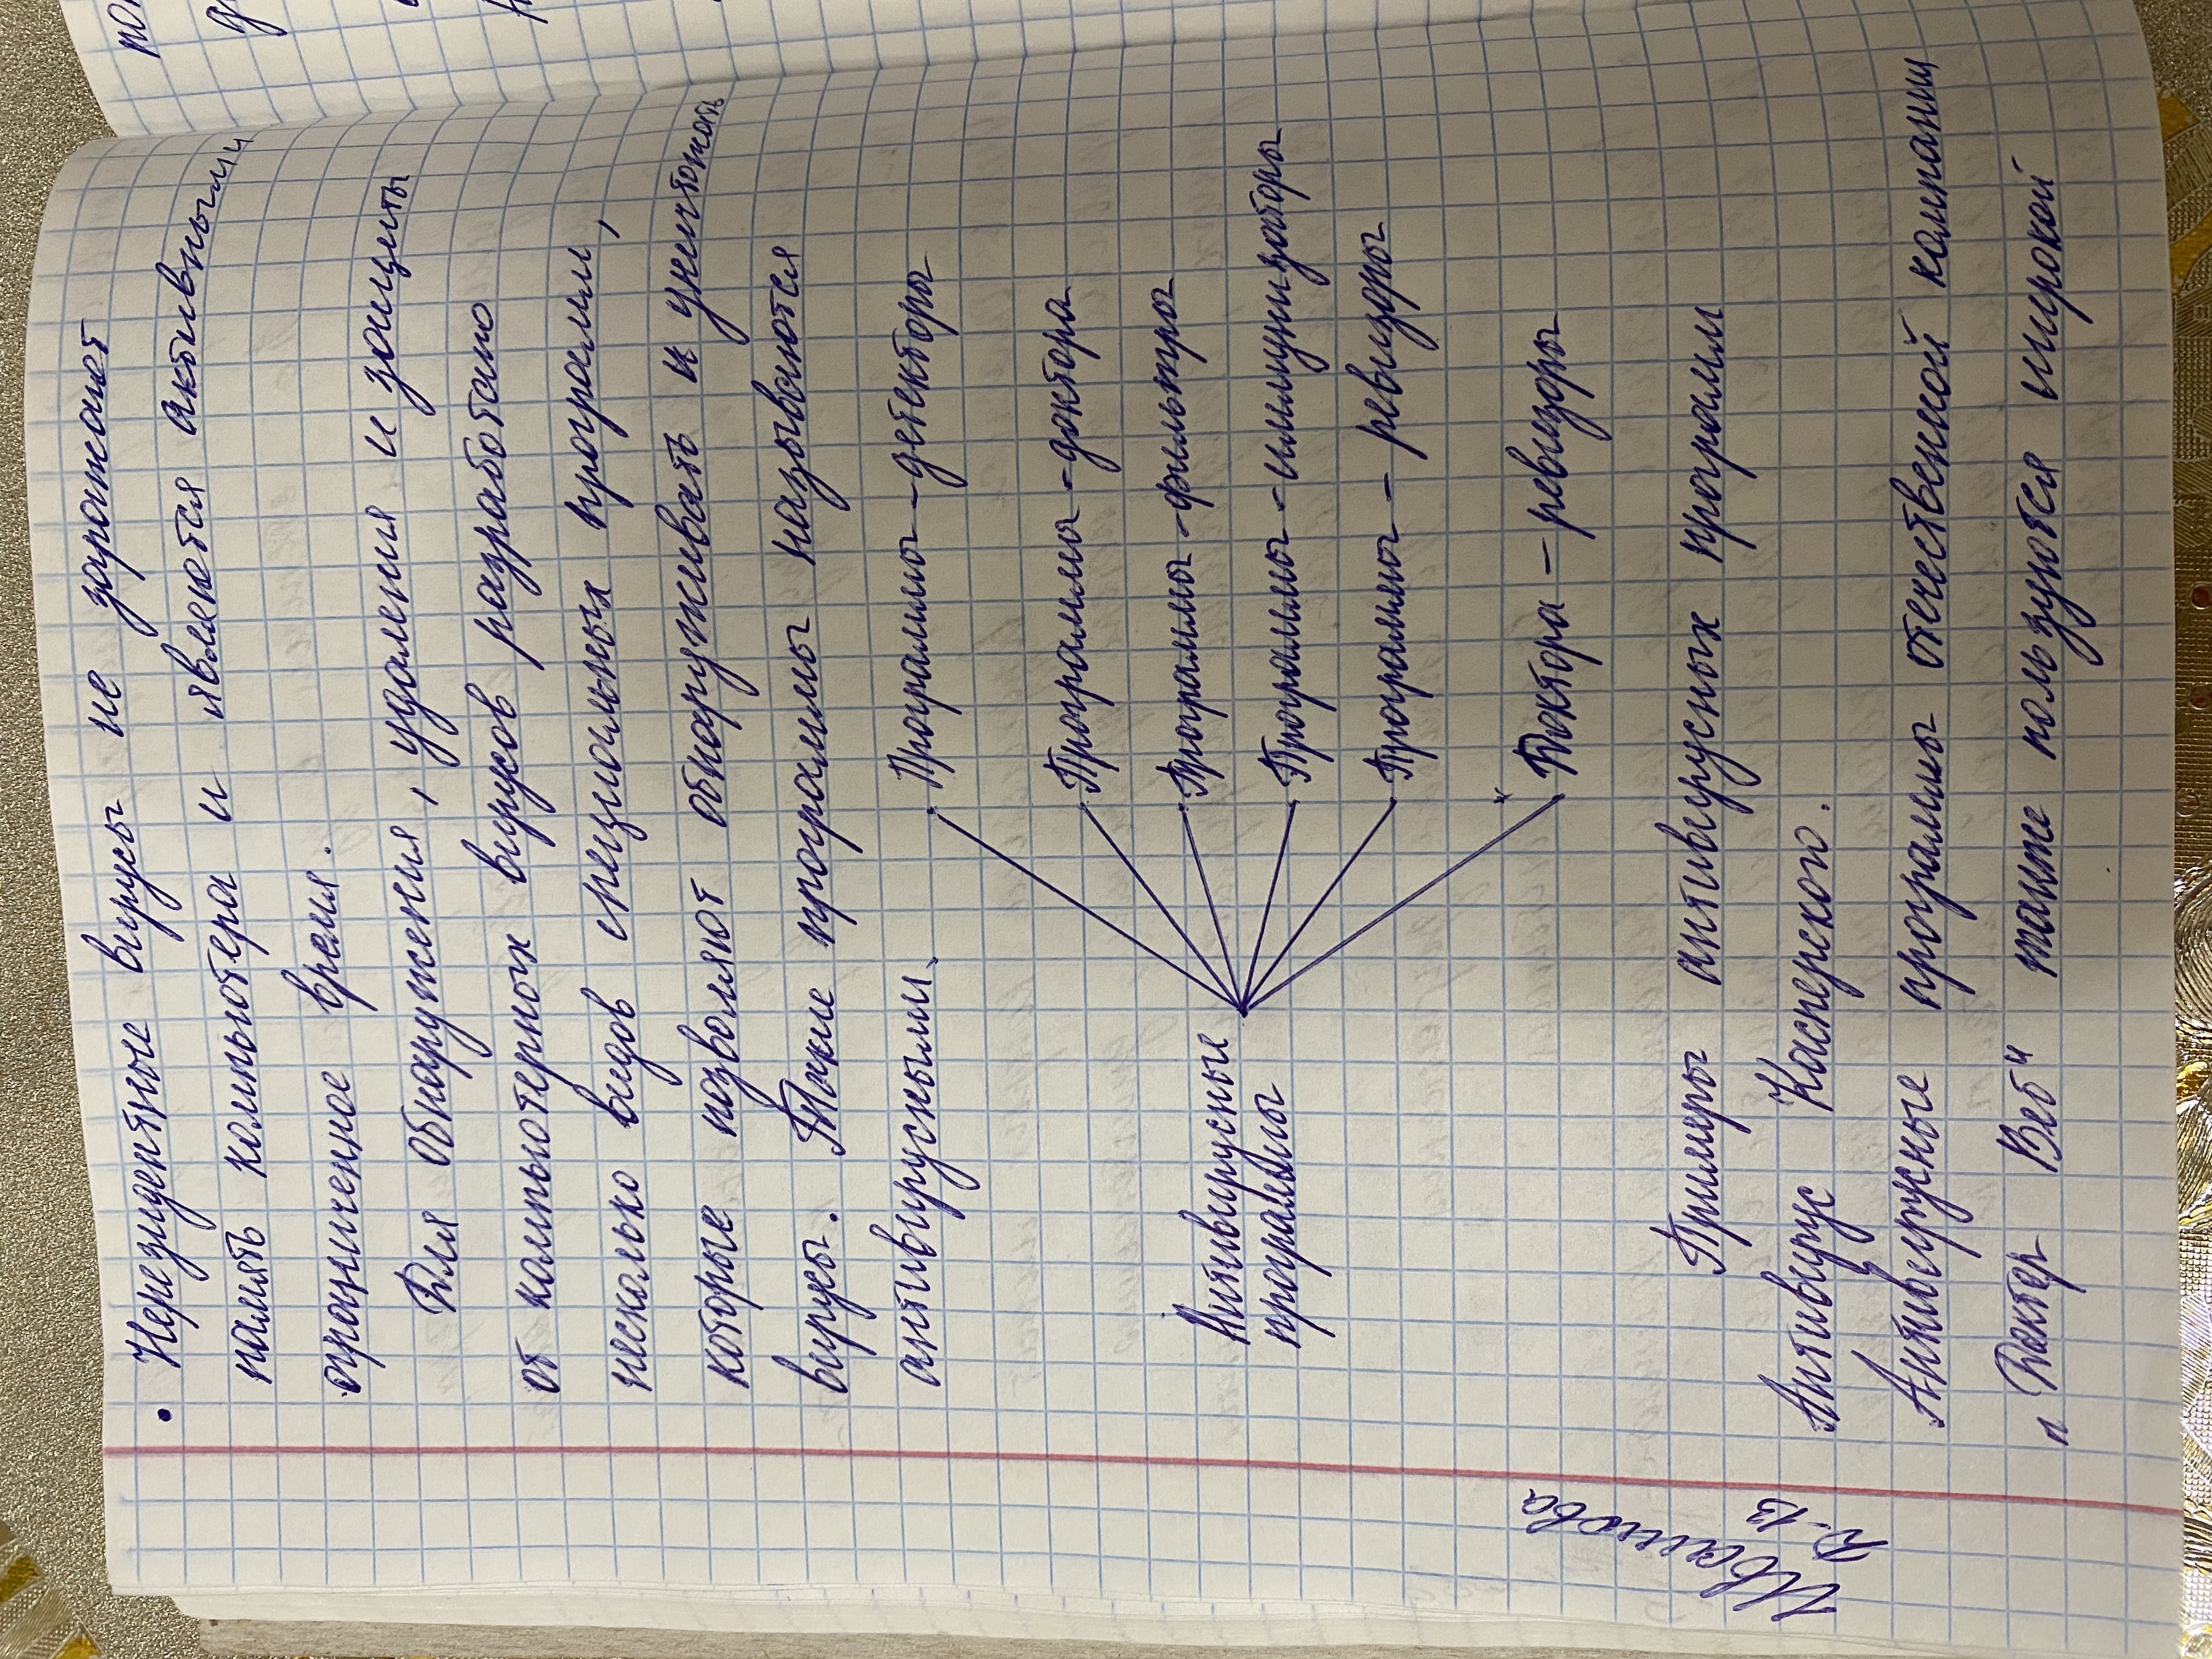 • Нерезидентные вирусы не заражают
память компьютера и являются активными
ограниченное время.
Для обнаружения, удаления и защиты
от компьютерных вирусов разработано
несколько видов специальных программ,
которые позволяют обнаруживать и уничтожать
вирусы. Такие программы называются
антивирусными.
Программы - детекторы
Программа - доктора
Программы - фильтры
Антивирусные
программы
Программы - иммунизаторы
Программы - ревизоры
Доктора - ревизоры
Примеры антивирусных программ
Антивирус Касперского.
Антивирусные программы отечественной компании
"Доктер Веб" также пользуются широкой